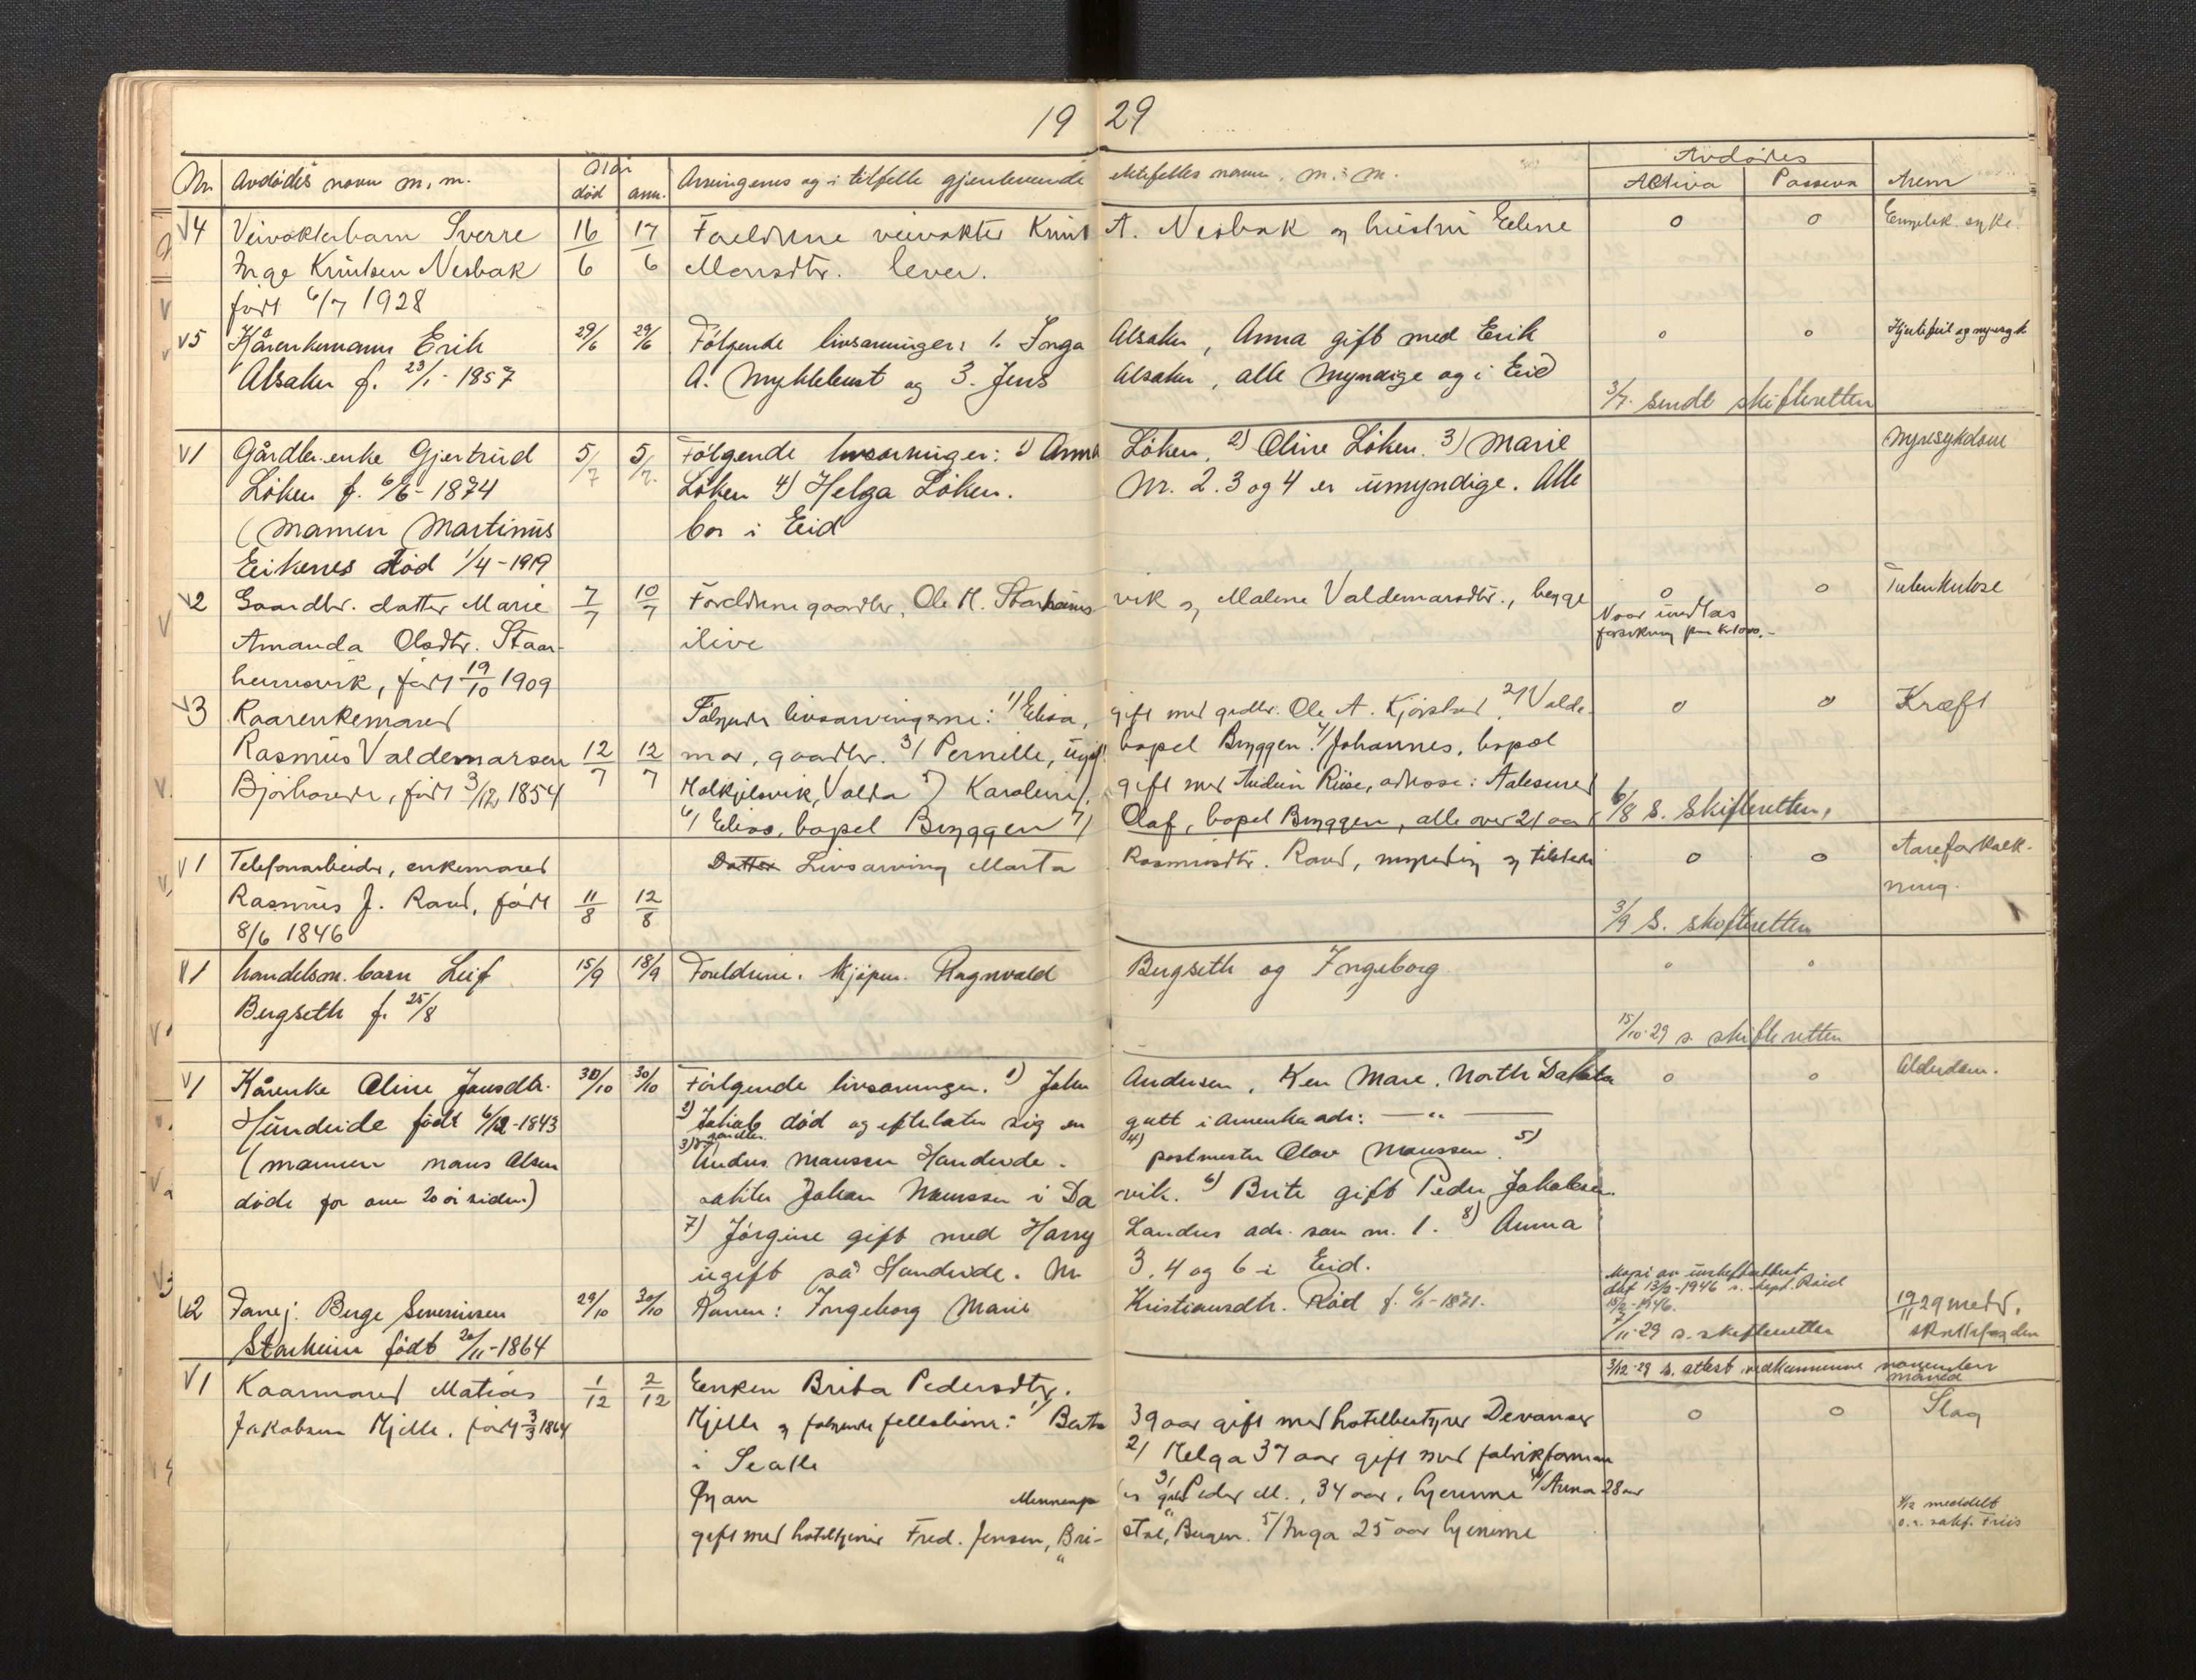 19 29
Nr. Avdødes navn m. m. død anm. Arvingenes og i tilfelle gjenlevende ektefelles navn m. m. Avdødes
Aktiva Passiva Anm
4 Veivokterbarn Sverre 16/6 17/6 Foreldrene veivokter Knut A. Nesbak og hustru Eeline 0 0 Engelsk syke.
Inge Knutsen Nesbak Monsdtr. lever.
født 6/7 1928
5 Kårenkemann Erik 29/6 29/6 Følgende livsarvinger: 1. Inga Alsaker, Anna gift med Erik 0 0 Hjertefeil og nyresyk
Alsaker f. 23/1 - 1857 A. Myklebust og 3. Jens Alsaker, alle myndige og i Eid
3/7. sendt skifteretten
1 Gårdbr.enke Gjertrud 5/7 5/7. Følgende livsarvinger: 1) Anna Løken, 2) Oline Løken. 3) Marie Nyresykdom
Løken f. 6/6 - 1874 Løken 4) Helga Løken. Nr. 2. 3 og 4 er umyndige. Alle
(mannen Martinus bor i Eid
Eikenes død 1/4 - 1919
2 Gaardbr. datter Marie 7/7 10/7 Foreldrene gaardbr. Ole M. Starheims vik og Malene Valdemarsdtr., begge 0 0 Tuberkulose
Amanda Olsdtr. Staar- ilive
heimsvik, født 19/10 1909
3 Kaarenkemand Følgende livsarvingerne: 1/ Elisa, gift med grdbr. Ole A. Kjørstad, 2/ Valde- 0 0 Kræft
Rasmus Valdemarsen 12/7 12/7 mar, gaardbr. 3/ Pernille, ugift. bopel Bryggen. 4/ Johannes, bopel
Bjørhovde, født 3/12 1854 Volda 5) Karoline, gift med Riise, adresse: Aalesund
6/ Elias, bopel Bryggen 7/ Olaf, bopel Bryggen, alle over 21 aar 6/8 s. skifteretten,
1 Telefonarbeider, enkemand Datter Livsarving Marta Rasmusdtr. Rand, myndig og tilstede 0 0 Aareforkalk-
Rasmus J. Rand, født 11/8 12/8 ning.
8/6 1846 3/9 s. skifteretten
1 handelsm. barn Leif 15/9 18/9 Foreldrene. kjøpm. Ragnvald Bergseth og Ingeborg 0 0
Bergseth f. 25/8
15/10-29 s. skifteretten
1 Kårenke Oline Jonsdtr. 30/10 30/10 Følgende livsarvinger. 1) John Andersen, Ken Mare, North Dakota 0 0 Alderdom.
Hundeide født 6/12 - 1843 2) Jakob død og efterlater sig en gutt i Amerika adr: — " —
(mannen død for 20 år siden) 3) Anders Monssen Hundeide. 4) postmester Olav Monssen. 5)
Johan Monssen i Da vik. 6) Brite gift Peder Jakobsen
7) Jørgine gift med Harry Landus adr. som nr. 1. 8) Anna
ugift på Hundeide. Nr 3, 4 og 6 i Eid.
2 Berge Severinsen 29/10 30/10 Konen: Ingeborg Marie Kristiansdtr. Rød f. 6/1 - 1871.
Starheim født 20/11 - 1864 7/11-29 s. skifteretten 19/11 29 medd.
3/12-29 s. attest vedkommende november måned
1 Kaarmand Matias 1/12 2/12 Enken Brita Pedersdtr.
Jakobsen Hjelle. født 3/3 1864 Hjelle og følgende fellesbarn: 1/ Berta 39 aar gift med hotelbestyrer Devanser 0 0 Slag
i Seattle 2/ Helga 37 aar gift med fabrikforman
3/ Peder M., 34 aar, hjemme 4/ Anna 28 aar
gift med Fred. Jensen, Bri- stol, Bergen. 5/ Inga 25 aar hjemme
meddelt